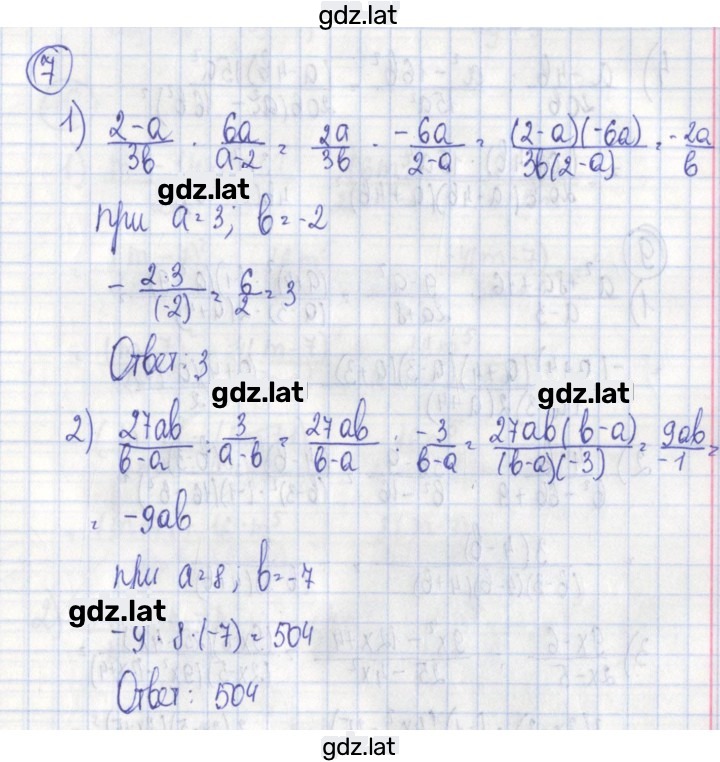 gdz.lat
7
1) (2-a)/3b · 6a/(a-2) = 2a/3b · -6a/(2-a) = (2-a)(-6a)/3b(2-a) = -2a/b
gdz.lat
при a=3; b=-2
- 2·3/(-2) = 6/2 = 3
Ответ: 3
gdz.lat
gdz.lat
2) 27ab/(b-a) : 3/(a-b) = 27ab/(b-a) : -3/(b-a) = 27ab(b-a)/(b-a)(-3) = 9ab/-1 =
= -9ab
при a=8; b=-7
gdz.lat
-9·8·(-7) = 504
Ответ: 504
gdz.lat